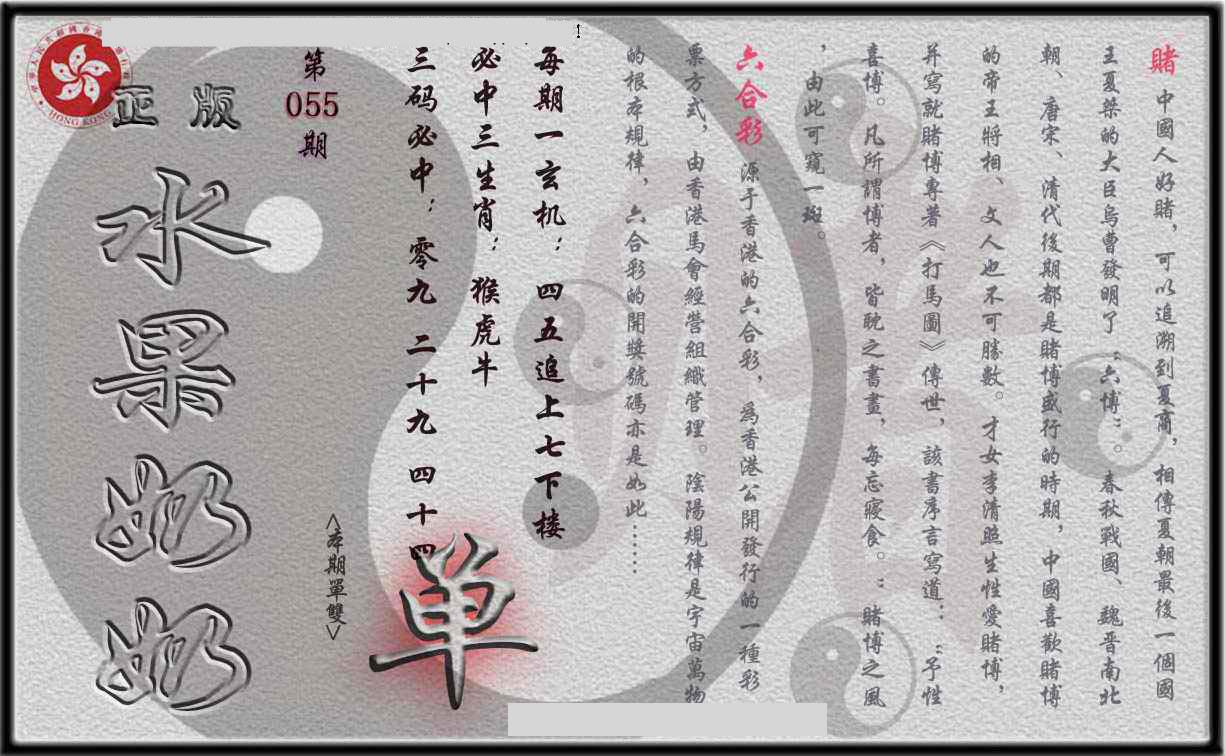 賭 中國人好賭，可以追溯到夏商，相傳夏朝最後一個國
王夏桀的大臣烏曹發明了“六博”。春秋戰國、魏晋南北
朝、唐宋、清代後期都是賭博盛行的時期，中國喜歡賭博
的帝王將相、文人也不可勝數。才女李清照生性愛賭博，
并寫就賭博專著《打馬圖》傳世，該書序言寫道：“予性
喜博。凡所謂博者，皆耽之書畫，每忘寢食。”賭博之風
，由此可窺一斑。
六合彩 源于香港的六合彩，為香港公開發行的一種彩
票方式，由香港馬會經營組織管理。陰陽規律是宇宙萬物
的根本規律，六合彩的開獎號碼亦是如此……
每期一玄机：四五追上七下楼
必中三生肖：猴虎牛
三码必中：零九 二十九 四十四
单
<本期單雙>
第
055
期
正版
水果奶奶
HONG KONG